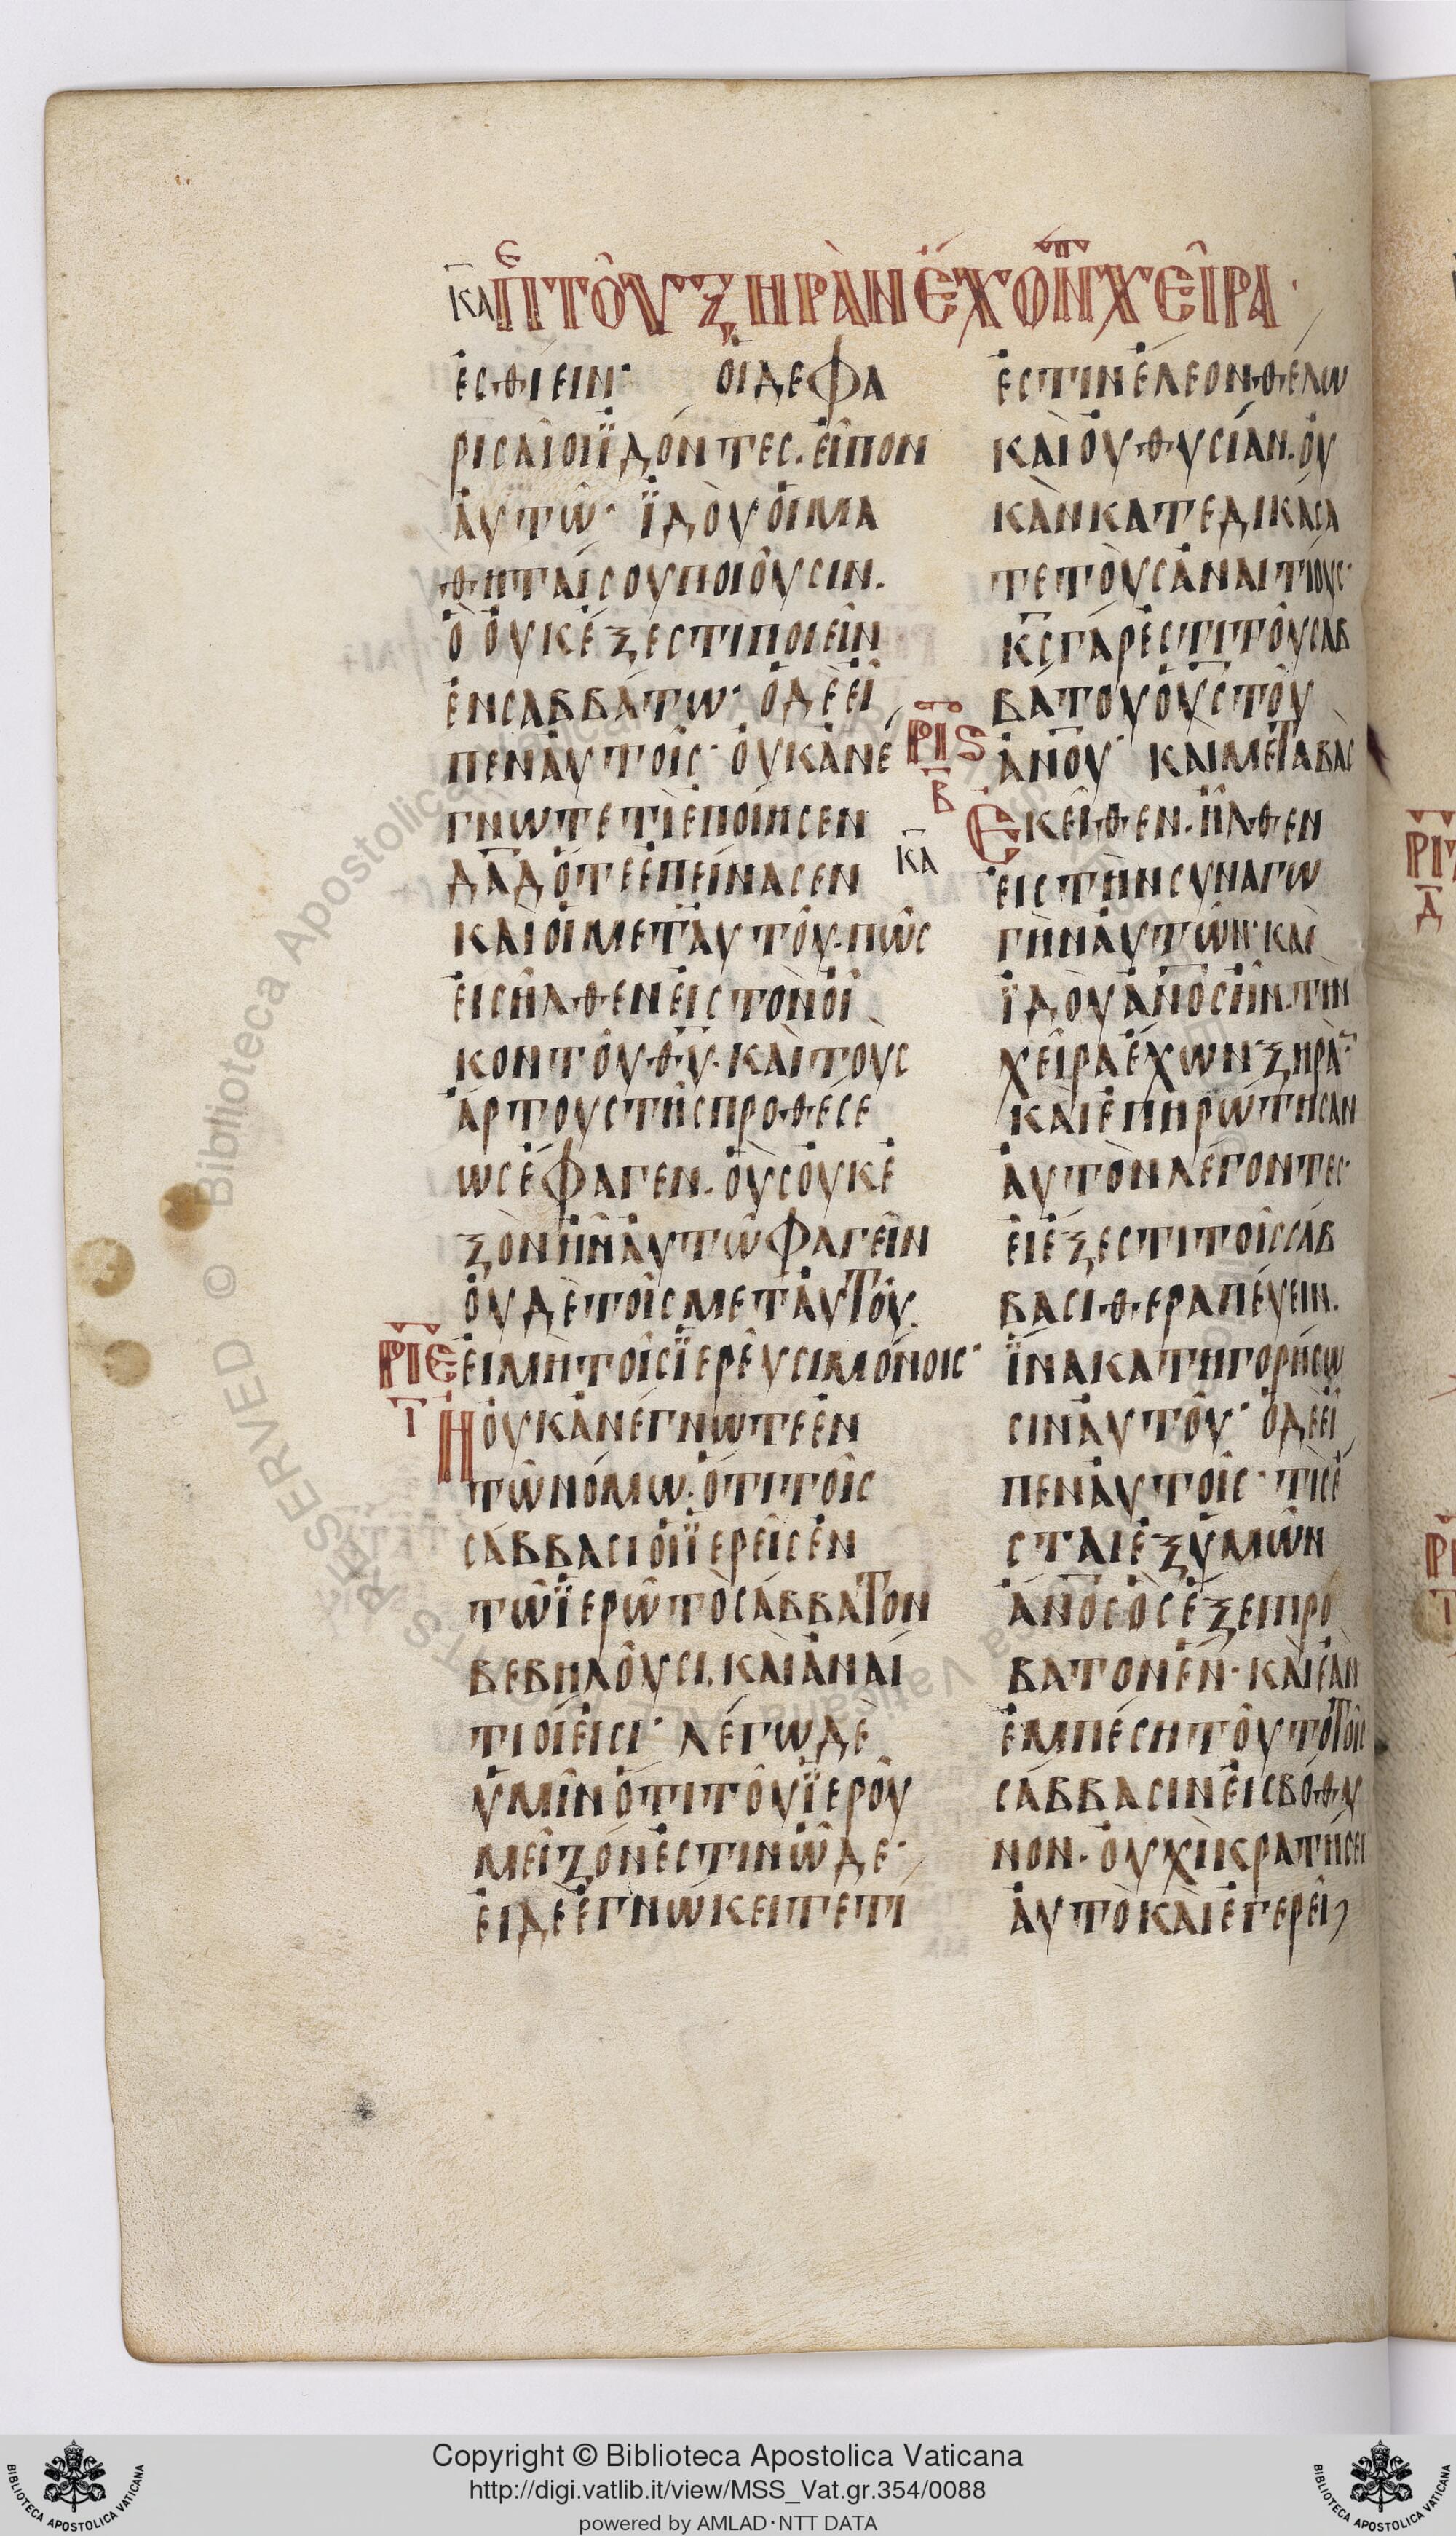 κα Περὶ τοῦ ξηρὰν ἔχοντος χεῖρα·
ἐσθίειν· οἱ δε φα
ρισαῖοι ϊδόντες. εἶπον
ἀυτῶ· ϊδοὺ οἱ μα
θηταί σου ποιοῦσιν.
ὃ ὀυκ ἔξεστι ποιεῖν
ἐν σαββάτω· ὁ δὲ εἶ
πεν ἀυτοῖς· ὀυκ ἀνέ
γνωτε τὶ ἐποίησεν
δα̅δ ὅτε ἐπείνασεν
καὶ οἱ μετ αὐτοῦ. πῶς
ἐισῆλθεν ἐις τὸν οἶ
κον τοῦ θ̅υ. καὶ τοὺς
ἄρτους τῆς προθέσε
ως ἔφαγεν. οὓς ὀυκ ἐ
ξὸν ἦν ἀυτῶ φαγεῖν
ὀυδὲ τοῖς μετ ἀυτοῦ.
ΡΙΕ ἐι μὴ τοῖς ϊερεῦσι μόνοις·
Ι Ἢ ὀυκ ἀνέγνωτε ἐν
τῶ νόμω. ὅτι τοῖς
σάββασι οἱ ϊερεῖς ἐν
τῶ ϊερῶ τὸ σάββατον
βεβηλοῦσι. καὶ ἀναί
τιοί ἐισι· λέγω δὲ
ὑμῖν ὅτι τοῦ ϊεροῦ
μεῖζόν ἐστιν ὧδε·
ἐι δὲ ἐγνώκειτε τί
ἐστιν ἔλεον θέλω
καὶ ὀυ θυσίαν. ὀυ
κ ὰν κατεδικάσα
τε τοὺς ἀναιτίους·
κ̅ς γάρ ἐστι τοῦ σαβ
βάτου ὁ υ̅ς τοῦ
ΡΙϚ ἀν̅ου· καὶ μεταβὰς
Β Ἐκεῖθεν. ἦλθεν
κα ἐις τὴν συναγω
γὴν ἀυτῶν· καὶ
ϊδοὺ ἀν̅ος ἦν. τὴν
χεῖρα ἔχων ξηράν·
καὶ ἐπηρώτησαν
ἀυτὸν λέγοντες·
ἐι ἔξεστι τοῖς σάβ
βασι θεραπέυειν.
ϊνα κατηγορήσω
σιν ἀυτοῦ· ὁ δὲ εἶ
πεν ἀυτοῖς· τὶς ἔ
σται ἐξ ὑμῶν
ἀν̅ος ὃς ἕξει πρό
βατον ἕν· καὶ ἐὰν
ἐμπέση τοῦτο τοῖς
σάββασιν ἐις βόθυ
νον. ὀυχὶ κρατήσει
ἀυτὸ καὶ ἐγερεῖ
Copyright © Biblioteca Apostolica Vaticana
http://digi.vatlib.it/view/MSS_Vat.gr.354/0088
powered by AMLAD·NTT DATA
BIBLIOTECA APOSTOLICA VATICANA
BIBLIOTECA APOSTOLICA VATICANA